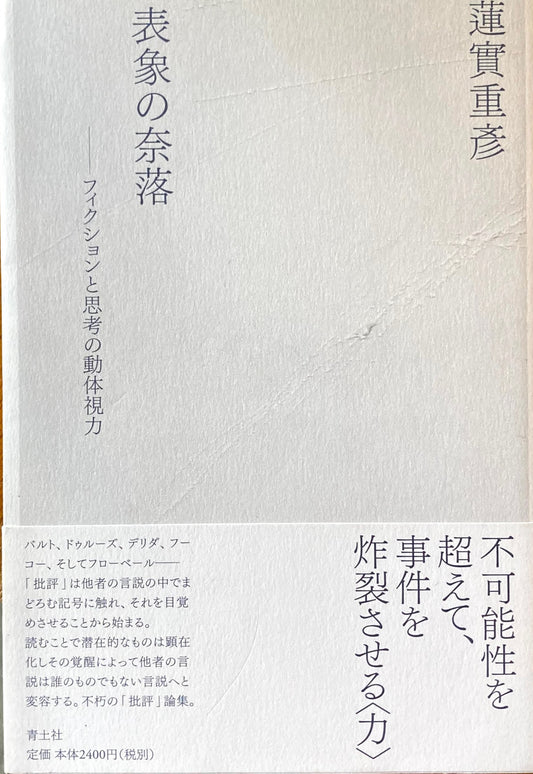 蓮實重彥
表象の奈落
──フィクションと思考の動体視力
不可能性を
超えて、
事件を
炸裂させる〈力〉
バルト、ドゥルーズ、デリダ、フー
コー、そしてフローベール──
「批評」は他者の言説の中でま
どろむ記号に触れ、それを目覚
めさせることから始まる。
読むことで潜在的なものは顕在
化しその覚醒によって他者の言
説は誰のものでもない言説へと
変容する。不朽の「批評」論集。
青土社
定価 本体2400円(税別)